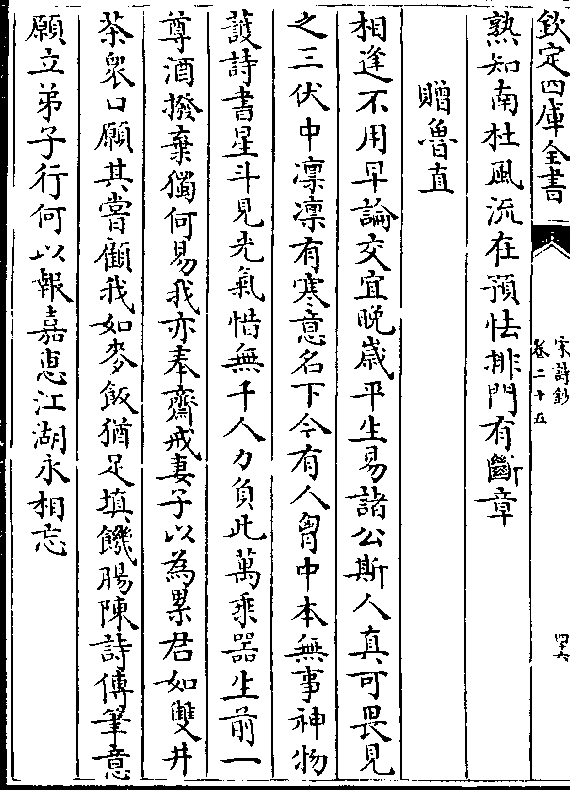 欽定四庫全書
宋詩鈔
卷二十五
四十六
熟知南杜風流在預怯排門有斷章
贈魯直
相逢不用早論交宜晩歲平生易諸公斯人真可畏見
之三伏中凛凛有寒意名下今有人胷中本無事神物
䕶詩書星斗見光氣惜無千人力負此萬乘器生前一
尊酒撥棄獨何易我亦奉齋戒妻子以為累君如雙井
茶衆口願其嘗顧我如麥飯猶足填饑腸陳詩傅筆意
願立弟子行何以報嘉惠江湖永相忘